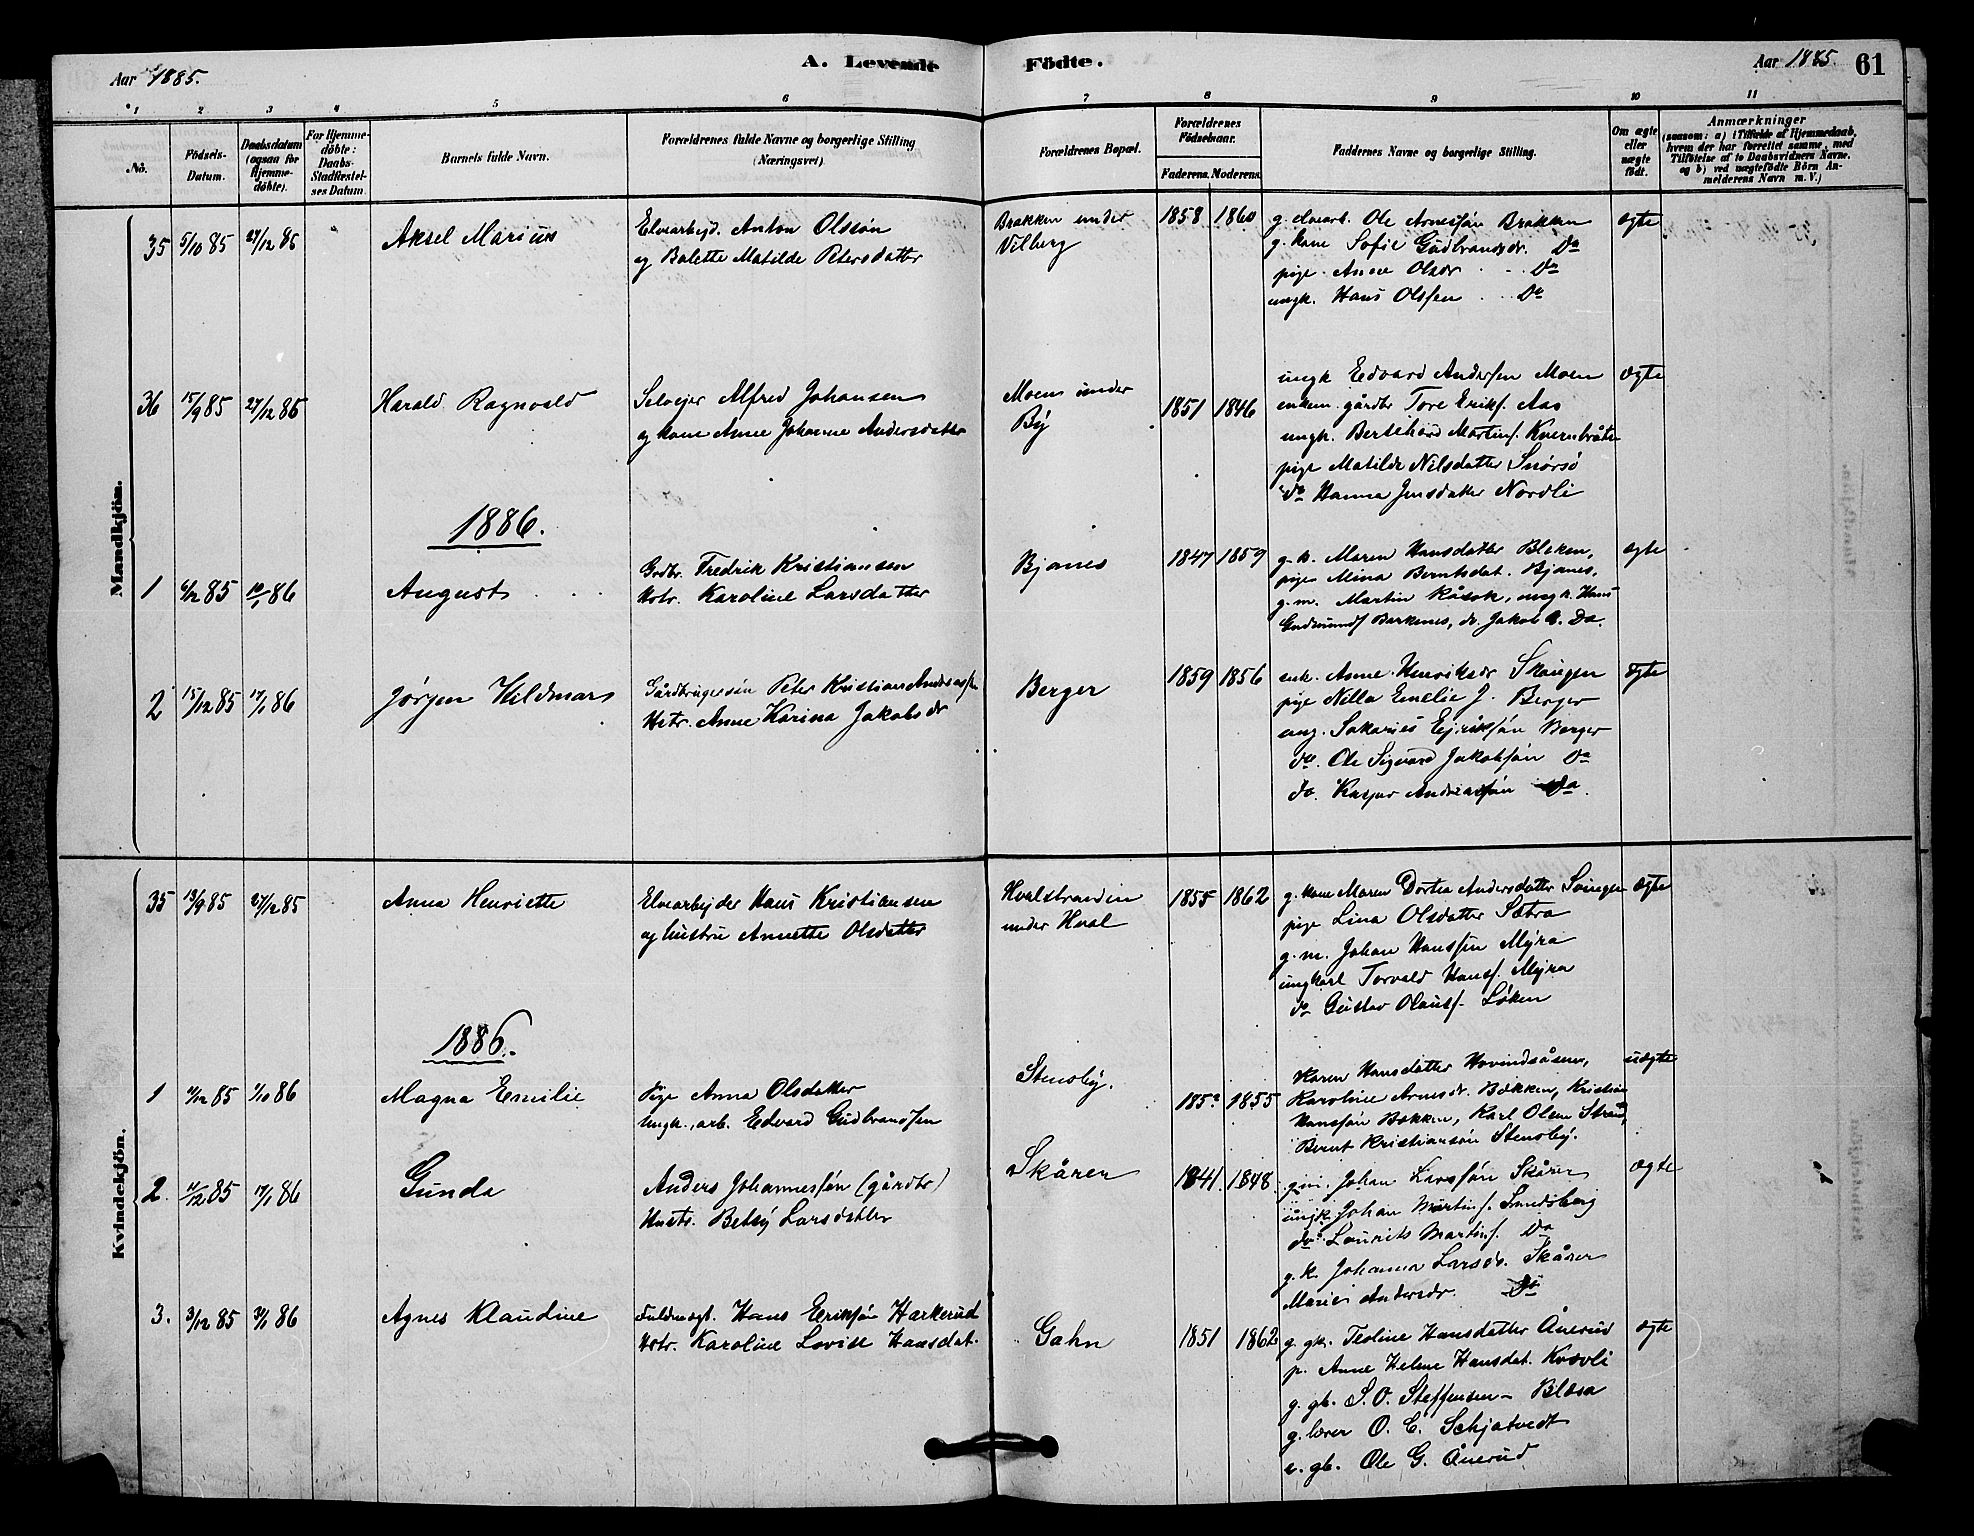 Aar 1885.
A. Levende Födte.
Aar 1885. 61
1 2 3 4 5 6 7 8 9 10 11
No.
Födsels-Datum.
Daabsdatum (ogsaa for Hjemme-döbte).
For Hjemme-döbte: Daabs-Stadfæstel-ses Datum.
Barnets fulde Navn.
Forældrenes fulde Navne og borgerlige Stilling (Næringsvei).
Forældrenes Bopæl.
Forældrenes Födselsaar.
Faderens. Moderens.
Faddernes Navne og borgerlige Stilling.
Om ægte eller uægte födt.
Anmærkninger
(saasom: a) i Tilfælde af Hjemmedaab, hvem der har forrettet samme, med Tilföielse af to Daabsvidners Navne, og b) ved uægtefödte Börn An-melderens Navn m. V.)
Mandkjön.
35 5/10 85 27/12 85 Aksel Marius
Elvearbejd. Anton Olssøn
og Bolette Matilde Petersdatter
Brakken under
Vilberg
1858 1860
g. elvearb. Ole Arnessøn Brakken
g. kone Sofie Gudbrandsdr. Do
pige. Anne Olsdr. Do
ungk. Hans Olssen Do
ægte
36 15/9 85 27/12 85 Harald Ragnvald
Selvejer Alfred Johansen
og kone Anne Johanne Andersdatter
Moen under
By
1851 1846
ungk Edvard Andersen Moen
enkem. gårdbr Tore Eriks. Aas
ungk. Bertehard Martins. Kvernbråten
pige Matilde Nilsdatter Snørsø
do Hanna Jensdatter Nordli
ægte
1886.
1 6/12 85 10/1 86 August
Grdbr. Fredrik Kristiansen
Hstr. Karoline Larsdatter
Bjønes
1847 1859
g. k. Maren Hansdatter Bleken,
pige Mina Berntsdat. Bjanes,
g. m. Martin Råsok, ungk. Hans
Gudmunds Barkenes, do. Jakob A. Do.
ægte
2 15/12 85 17/1 86 Jørgen Hildmar
Gårdbrugersøn Peter Kristian Andreass.
Hstr. Anne Karina Jakobsdr
Berger
1859 1856
enk. Anne Henriksdr Skaugen
pige Nilla Emelie J. Berger
ung. Sakaries Ejrikssøn Berger
do. Ole Sigvard Jakobssøn Do
do. Kasper Andreassøn Do.
ægte
Kvindekjön.
35 13/9 85 27/12 85 Anna Henriette
Elvearbejder Hans Kristiansen
og hustru Annette Olsdatter
Hvalstranden
under Hval
1855 1862
g. kone Maren Dortea Andersdatter Svingen
pige Lina Olsdatter Sætra
g. m. Johan Hanssen Myra
ungkarl Torvald Hanss. Myra
do Gustav Olauss. Løken
ægte
1886.
1 11/12 85 1/10 86 Magna Emilie
Pige Anna Olsdatter
Ungk., arb. Edvard Gudbrandsen
Stensby.
185? 1855
Karen Hansdatter Hovindsåsen,
Karoline Arnesdr. Bækken, Kristian
Hanssøn Bækken, Karl Olsen Strand,
Bernt Kristiansøn Stensby.
uægte
2. 11/12 85 17/1 86 Gunda
Anders Johannessøn (gårdbr)
Hustr. Betsy Larsdatter
Skårer
1841. 1848
gm. Johan Larssøn Skårer
ungk. Johan Martins. Sundsberg
do. Laurits Martins. Do
g. k. Johanna Larsdr. Skårer
Marie Andersdr. Do
ægte
3. 3/12 85 31/1 86 Agnes Klaudine
Fuldmægt. Hans Erikssøn Harkerud
Hstr. Karoline Lovise Hansdat.
Gahn
1851 1862
g. gk. Teoline Hansdatter Ånerud
p. Anne Helene Hansdat. Kvævli
g. gb. S. O. Steffensen - Blæsa
g. lærer O. E. Schjatvedt
e. gb. Ole G. Ånerud
ægte